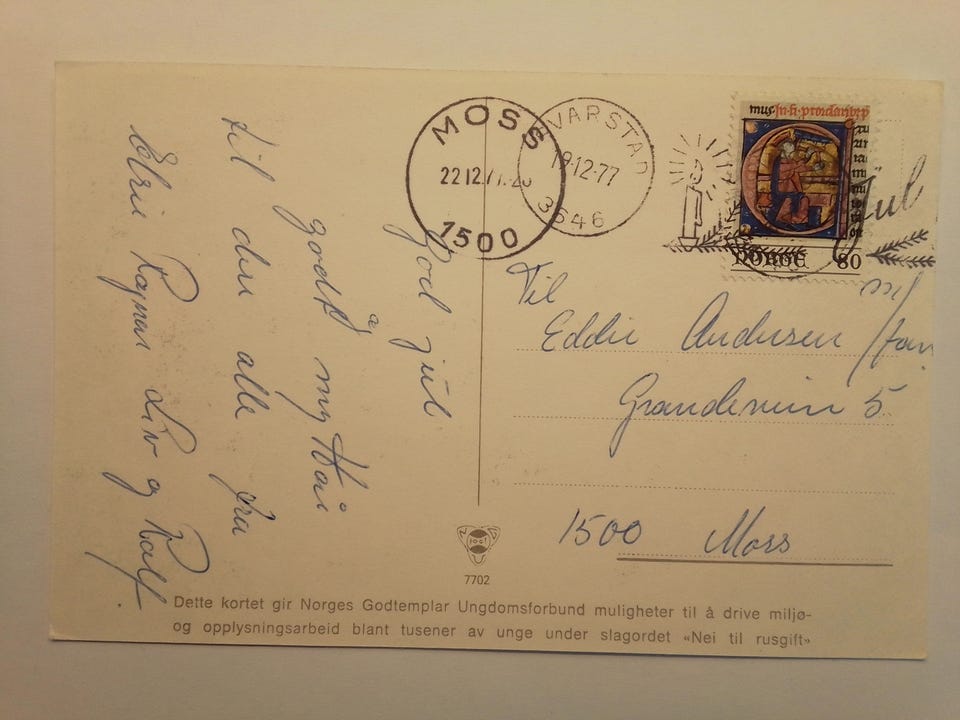 God jul
å
godt nytt år
til dere alle fra
Elvie Ragnar Liv og Ralf.
MOSS
22 12.77
1500
VARSTAD
19-12-77
3646
mus.
NORGE 80
Jul
Til
Eddie Andersen m/fam
Grandeveien 5
1500 Moss
7702
Dette kortet gir Norges Godtemplar Ungdomsforbund muligheter til å drive miljø-
og opplysningsarbeid blant tusener av unge under slagordet «Nei til rusgift»